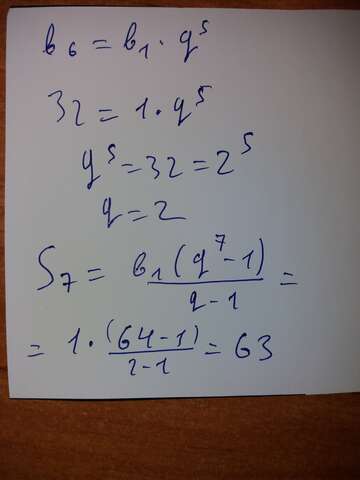 b₆ = b₁ · q⁵
32 = 1 · q⁵
q⁵ = 32 = 2⁵
q = 2
S₇ = b₁(q⁷ - 1) / q - 1 =
= 1 · (64 - 1) / 2 - 1 = 63